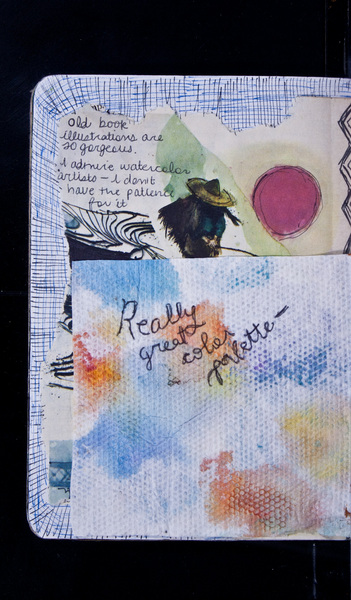 old book
illustrations are
so gorgeous.
I admire watercolor
artists — I don't
have the patience
for it
Really
great
color
palette —